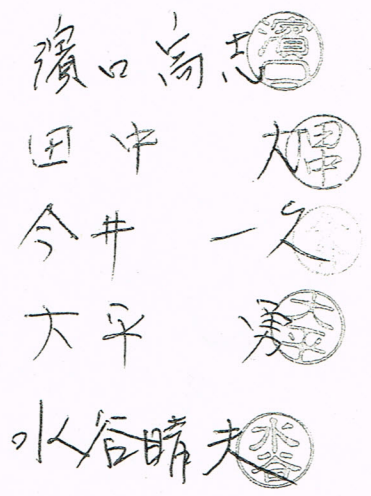 濱口高志 濱口
田中 大 田中
今井 一久
大平 勇 大平
水谷晴夫 水谷